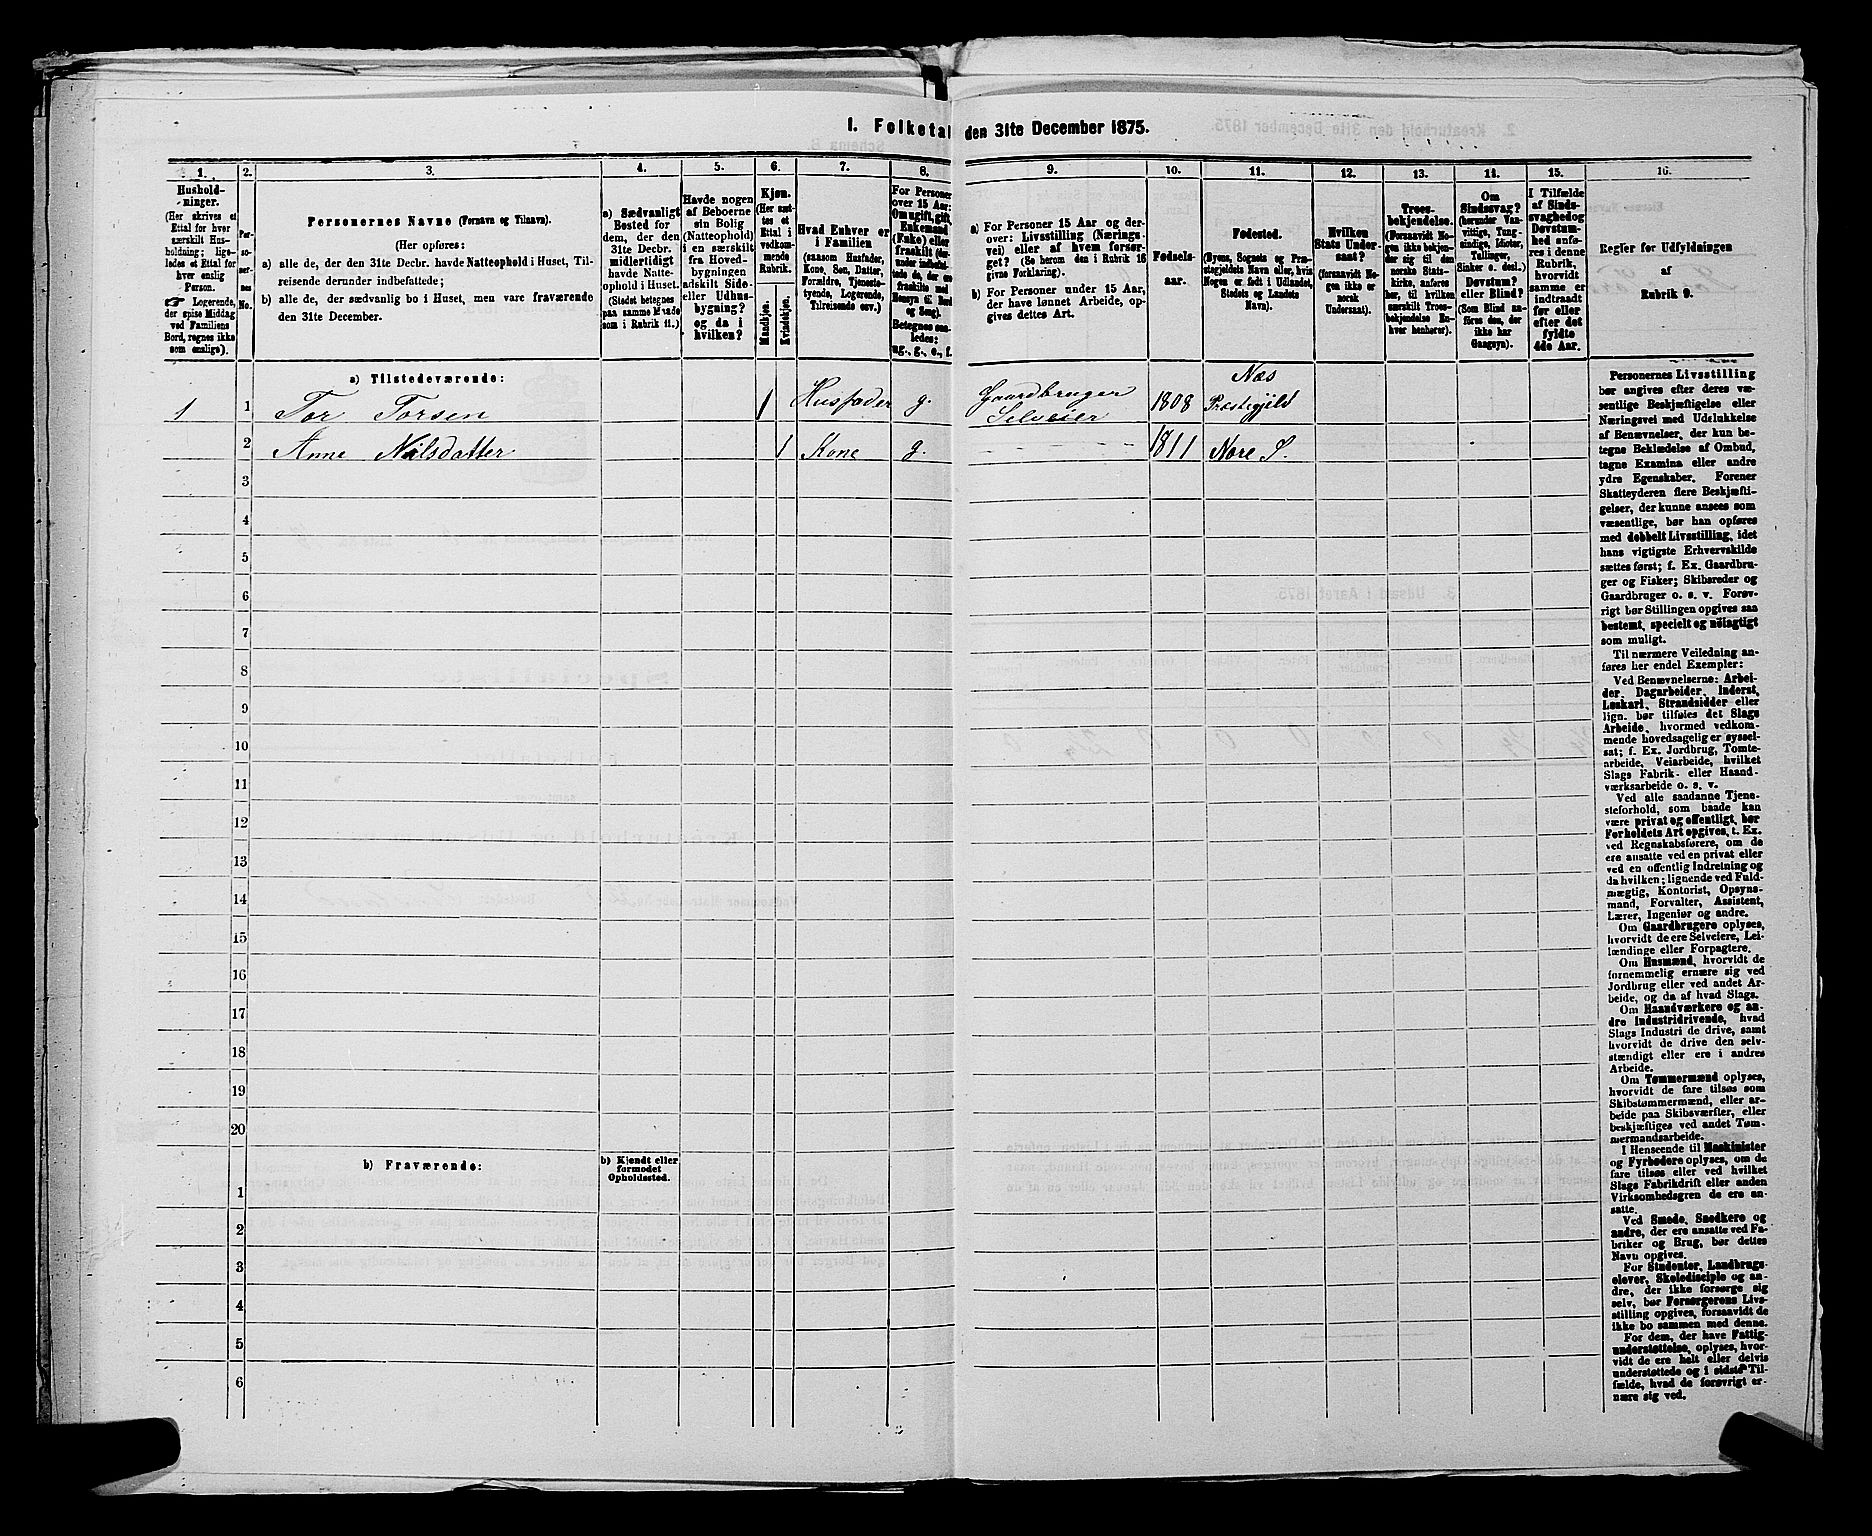 I. Folketal den 31te December 1875.
1.
Hushold-
ninger.
(Her skrives et
Ettal for hver
særskilt Hus-
holdning; lige-
ledes et Ettal for
hver enslig
Person.
☞ Logerende,
der spise Middag
ved Familiens
Bord, regnes ikke
som enslige).
2.
Per-
so-
ner-
nes
No.
3.
Personernes Navne (Fornavn og Tilnavn).
(Her opføres:
a) alle de, der den 31te Decbr. havde Natteophold i Huset, Til-
reisende derunder indbefattede;
b) alle de, der sædvanlig bo i Huset, men vare fraværende
den 31te December.
4.
a) Sædvanligt
Bosted for
dem, der den
31te Decbr.
midlertidigt
havde Natte-
ophold i Huset.
(Stedet betegnes
paa samme Maade
som i Rubrik 11.)
5.
Havde nogen
af Beboerne
sin Bolig
(Natteophold)
i en særskilt
fra Hoved-
bygningen
adskilt Side-
eller Udhus-
bygning?
og da i
hvilken?
6.
Kjøn.
(Her sæt-
tes et
Ettal i
vedkom-
mende
Rubrik.
Mandkjøn.
Kvindekjøn.
7.
Hvad Enhver er
i Familien
(saasom Husfader,
Kone, Søn, Datter,
Forældre, Tjeneste-
tyende, Logerende,
Tilreisende osv.)
8.
For Personer
over 15 Aar:
Om ugift, gift,
Enkemand
(Enke) eller
fraskilt
Betegnes saa-
ledes:
ug., g., e., f.
9.
a) For Personer 15 Aar og der-
over: Livsstilling (Nærings-
vei) eller af hvem forsør-
get? (Se herom den i Rubrik 16
givne Forklaring).
b) For Personer under 15 Aar,
der have lønnet Arbeide, op-
gives dettes Art.
10.
Fødsels-
aar.
11.
Fødested.
(Byens, Sognets og Præ-
stegjeldets Navn eller, hvis
Nogen er født i Udlandet,
Stedets og Landets
Navn).
12.
Hvilken
Stats Under-
saat?
(forsaavidt No-
gen ikke er
norsk
Undersaat).
13.
Troes-
bekjendelse.
(Forsaavidt No-
gen ikke bekjen-
der sig til den
norske Stats-
kirke, anføres
her, til hvilken
særskilt Troes-
bekjendelse En-
hver henhører).
14.
Om
Sindssvag?
(herunder Van-
vittige, Tung-
sindige, Idioter,
Tullinger,
Sinker o. desl.)
Døvstum?
eller Blind?
(Som Blind an-
føres den, der
ikke har
Gangsyn).
15.
I Tilfælde
af Sinds-
svaghed og
Døvstum-
hed anfø-
res i denne
Rubrik,
hvorvidt
samme er
indtraadt
før eller
efter det
fyldte
4de Aar.
16.
Regler for Udfyldningen
af
Rubrik 9.
a) Tilstedeværende:
1 1 Tor Torsen 1 Husfader g. Gaardbruger Selveier 1808 Næs Præstegjeld
2 Anne Nilsdatter 1 Kone g. 1811 Nore S.
3
4
5
6
7
8
9
10
11
12
13
14
15
16
17
18
19
20
b) Fraværende:
b) Kjendt eller
formodet
Opholdssted.
1
2
3
4
5
6
Personernes Livsstilling
bør angives efter deres væ-
sentlige Beskjæftigelse eller
Næringsvei med Udelukkelse
af Benævnelser, der kun be-
tegne Beklædelse af Ombud,
tagne Examina eller andre
ydre Egenskaber. Forener
Skatteyderen flere Beskjæfti-
gelser, der kunne ansees som
væsentlige, bør han opføres
med dobbelt Livsstilling, idet
hans vigtigste Erhvervskilde
sættes først; f. Ex. Gaardbru-
ger og Fisker; Skibsreder og
Gaardbruger o. s. v. Forøv-
rigt bør Stillingen opgives saa
bestemt, specielt og nøiagtigt
som muligt.
Til nærmere Veiledning an-
føres her endel Exempler:
Ved Benævnelserne: Arbei-
der, Dagarbeider, Inderst,
Løskarl, Strandsidder eller
lign. bør tilføies det Slags
Arbeide, hvormed vedkom-
mende hovedsagelig er syssel-
sat; f. Ex. Jordbrug, Tomte-
arbeide, Veiarbeide, hvilket
Slags Fabrik- eller Haand-
værksarbeide o. s. v.
Ved alle saadanne Tjene-
steforhold, som baade kan
være privat og offentligt, bør
Forholdets Art opgives, t. Ex.
ved Regnskabsførere, om de
ere ansatte ved en privat eller
ved en offentlig Indretning og
da hvilken; lignende ved Fuld-
mægtig, Kontorist, Opsyns-
mand, Forvalter, Assistent,
Lærer, Ingeniør og andre.
Om Gaardbrugere oplyses,
hvorvidt de ere Selveiere, Lei-
lændinge eller Forpagtere.
Om Husmænd, hvorvidt de
fornemmelig ernære sig ved
Jordbrug eller ved andet Ar-
beide, og da af hvad Slags.
Om Haandværkere og an-
dre Industridrivende, hvad
Slags Industri de drive, samt
hvorvidt de drive den selv-
stændigt eller ere i andres
Arbeide.
Om Tømmermænd oplyses,
hvorvidt de fare tilsøs som
Skibstømmermænd, eller ar-
beide paa Skibsværfter, eller
beskjæftiges ved andet Tøm-
mermandsarbeide.
I Henseende til Maskinister
og Fyrbødere oplyses, om de
fare tilsøs eller ved hvilket
Slags Fabrikdrift eller anden
Virksomhedsgren de ere an-
satte.
Ved Smede, Snedkere og
andre, der ere ansatte ved Fa-
briker og Brug, bør dettes
Navn opgives.
For Studenter, Landbrugs-
elever, Skoledisciple og an-
dre, der ikke forsørge sig
selv, bør Forsørgerens Livs-
stilling opgives, forsaavidt de
ikke bo sammen med denne.
For dem, der have Fattig-
understøttelse, oplyses, hvor-
vidt de ere helt eller delvis
understøttede og i sidste Til-
fælde, hvad de forøvrigt er-
nære sig ved.